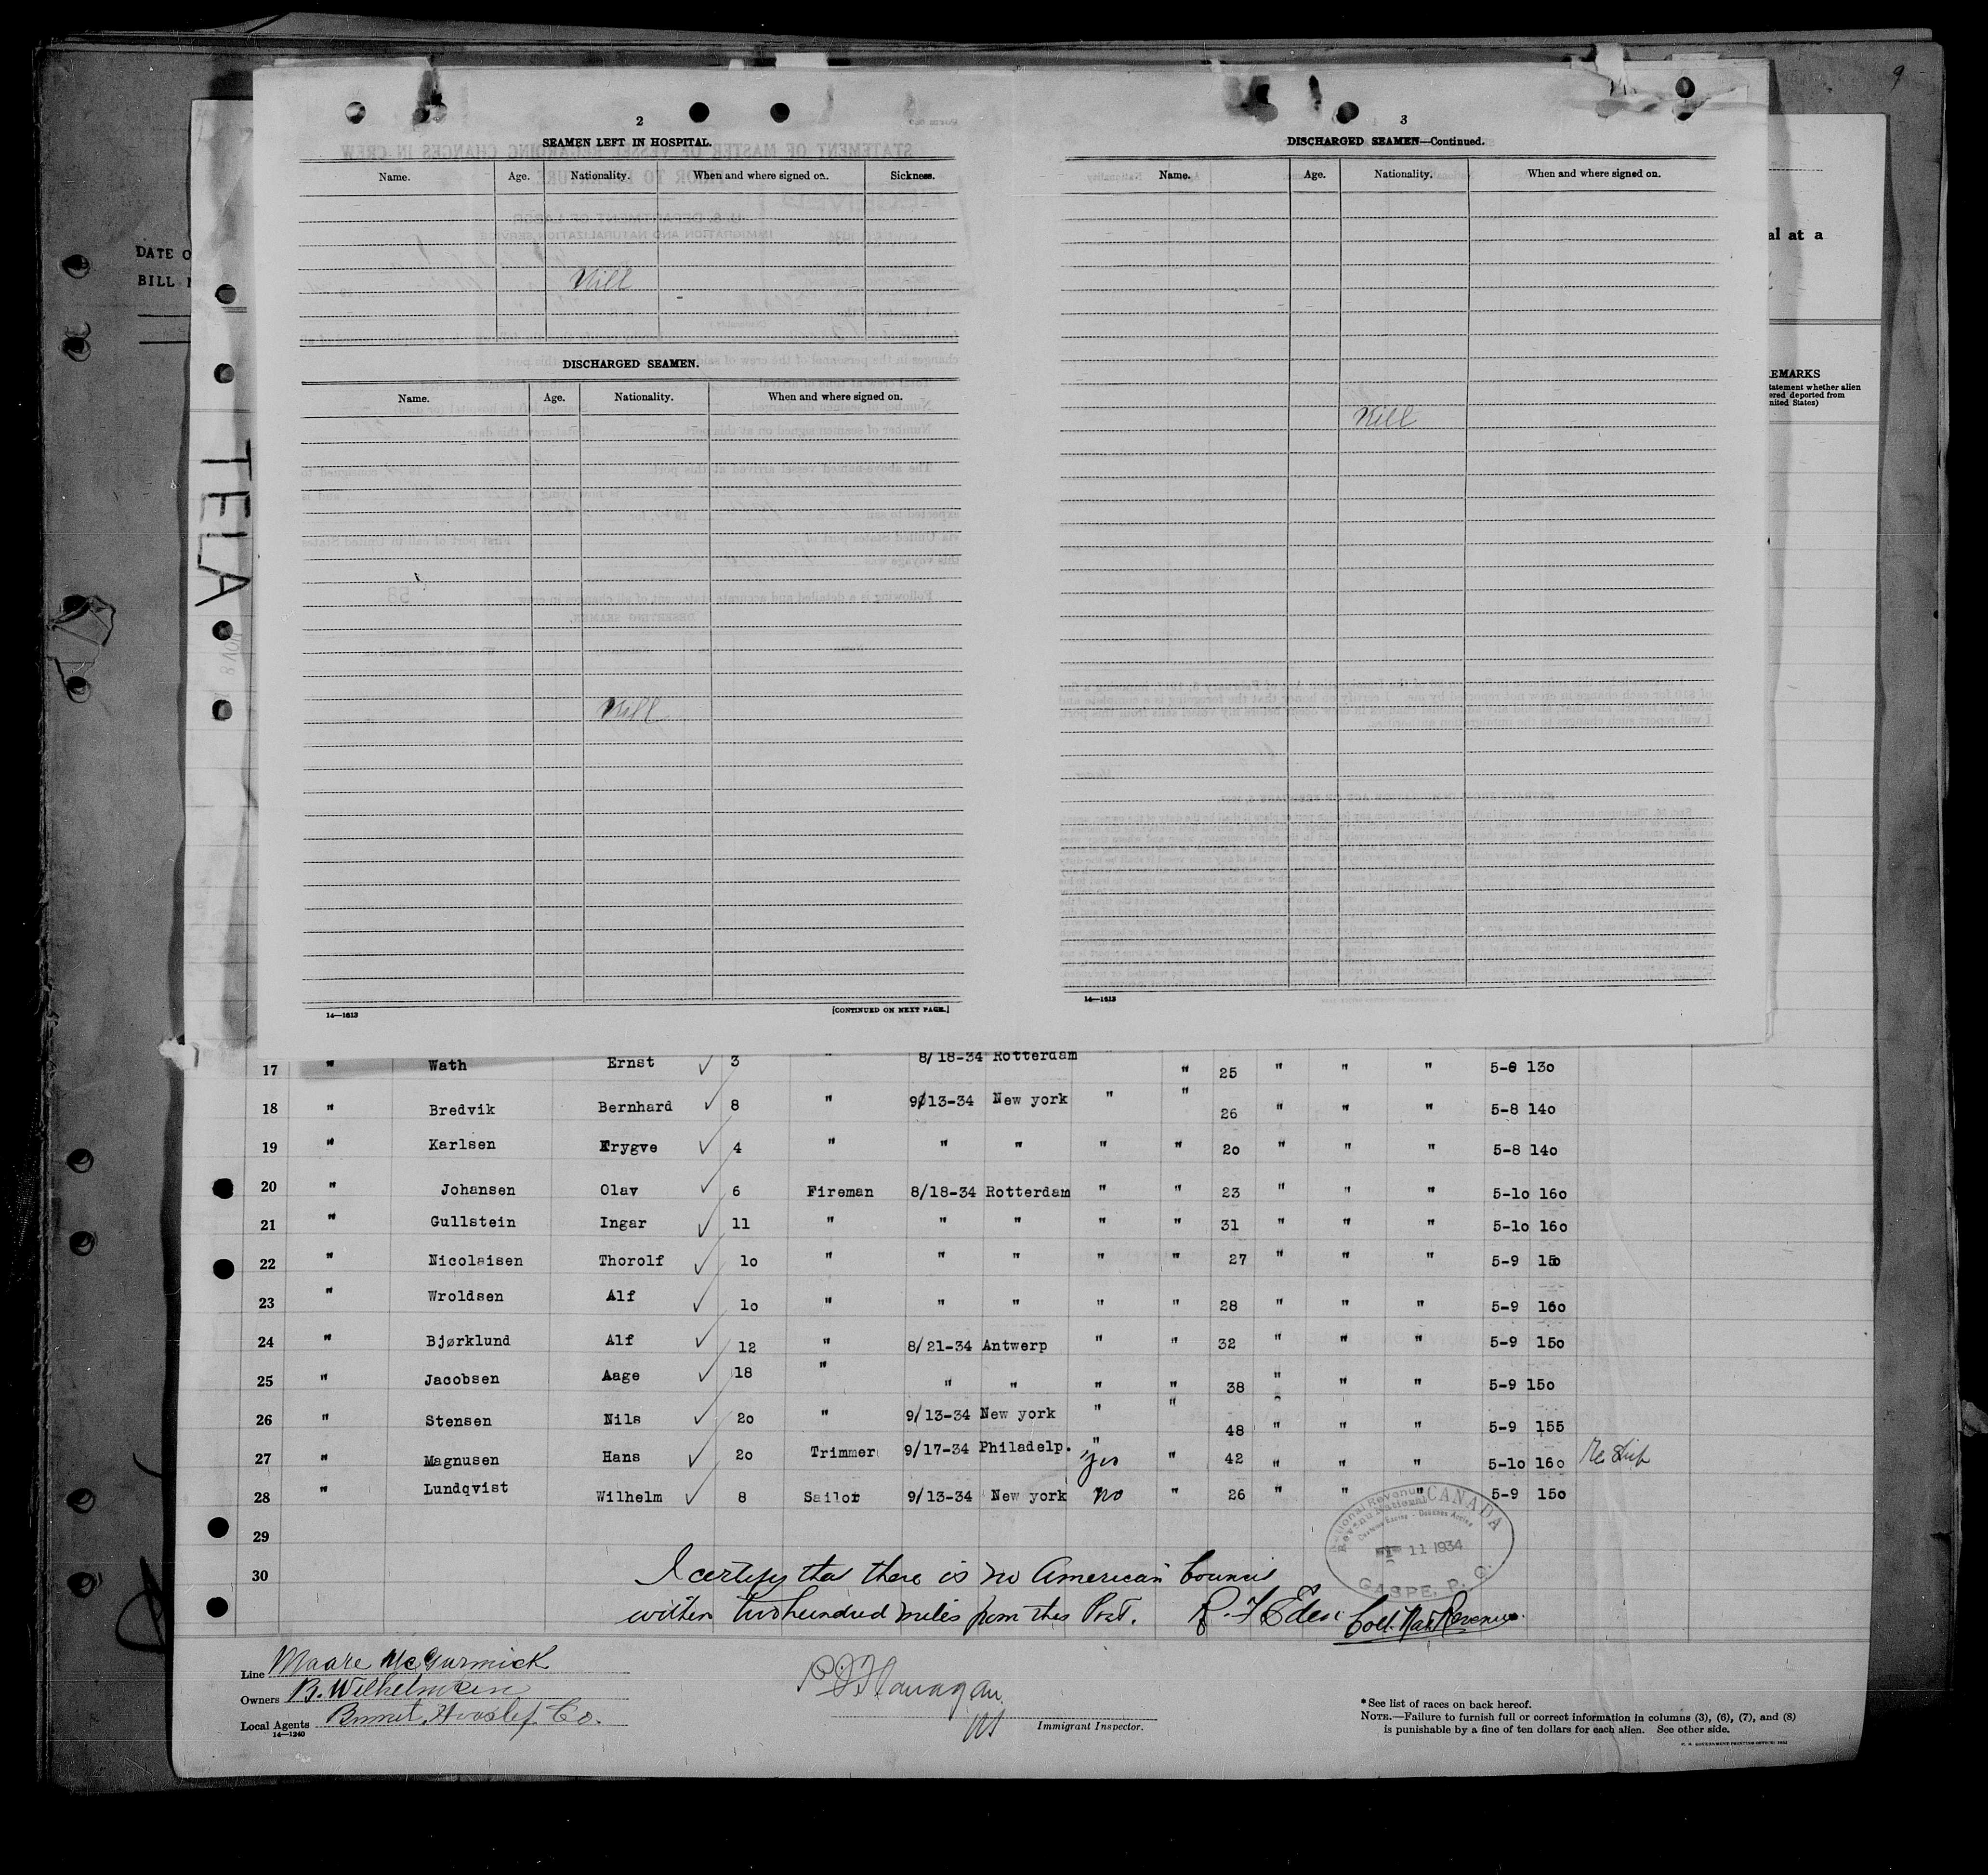 9
2
SEAMEN LEFT IN HOSPITAL.
Name. Age. Nationality. When and where signed on. Sickness.
Nill
DISCHARGED SEAMEN.
Name. Age. Nationality. When and where signed on.
Nill
14—1613 [CONTINUED ON NEXT PAGE.]
3
DISCHARGED SEAMEN—Continued.
Name. Age. Nationality. When and where signed on.
Nill
14—1613
DATE O
BILL
TELA
NOV 8
al at a
EMARKS
tatement whether alien
ered deported from
nited States)
17 " Wath Ernst ✓ 3 " 8/18-34 Rotterdam " " 25 " " " 5-8 130
18 " Bredvik Bernhard ✓ 8 " 9/13-34 New york " " 26 " " " 5-8 140
19 " Karlsen Trygve ✓ 4 " " " " " 20 " " " 5-8 140
20 " Johansen Olav ✓ 6 Fireman 8/18-34 Rotterdam " " 23 " " " 5-10 160
21 " Gullstein Ingar ✓ 11 " " " " " 31 " " " 5-10 160
22 " Nicolaisen Thorolf ✓ 10 " " " " " 27 " " " 5-9 150
23 " Wroldsen Alf ✓ 10 " " " " " 28 " " " 5-9 160
24 " Bjørklund Alf ✓ 12 " 8/21-34 Antwerp " " 32 " " " 5-9 150
25 " Jacobsen Aage ✓ 18 " " " " " 38 " " " 5-9 150
26 " Stensen Nils ✓ 20 " 9/13-34 New york " " 48 " " " 5-9 155
27 " Magnusen Hans ✓ 20 Trimmer 9/17-34 Philadelp. " yes " 42 " " " 5-10 160
28 " Lundqvist Wilhelm ✓ 8 Sailor 9/13-34 New york no " 26 " " " 5-9 150
29
30
National Revenue CANADA
Revenu National
11 1934
GASPE, P. Q.
I certify that there is no American Council
within two hundred miles from this Port. R. F. Eden Coll. Nat. Revenue.
Line Moore McCormick
Owners B. Wilhelmsen
Local Agents Co.
14—1240
Flanagan
Immigrant Inspector.
* See list of races on back hereof.
NOTE.—Failure to furnish full or correct information in columns (3), (6), (7), and (8)
is punishable by a fine of ten dollars for each alien. See other side.